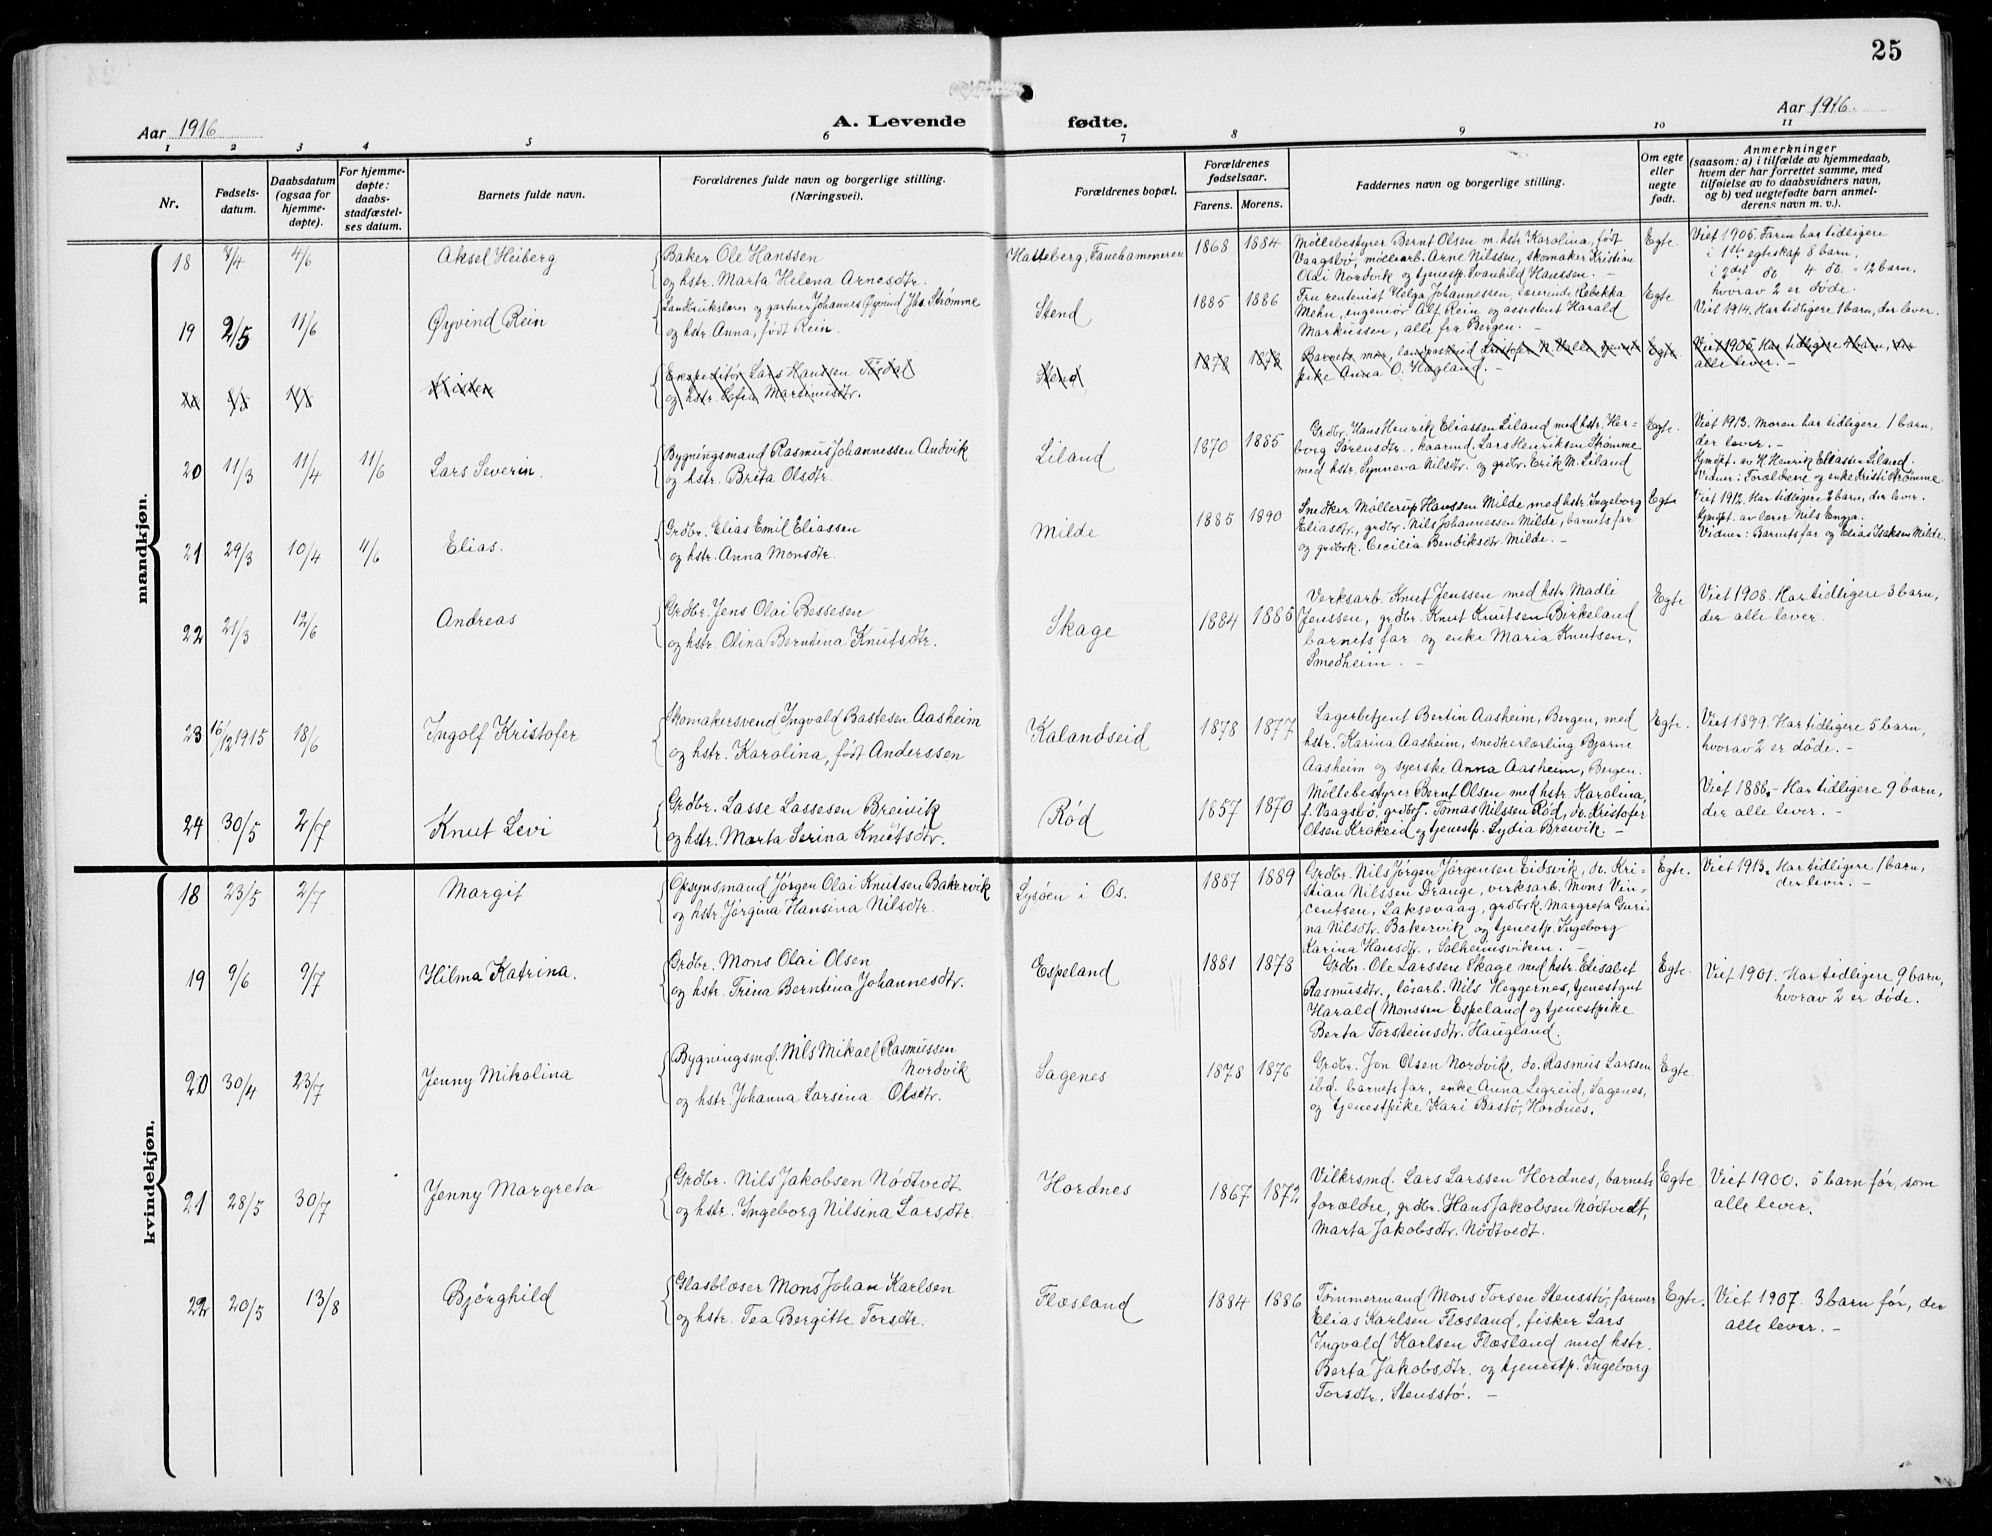 25
Aar 1916
A. Levende fødte.
Aar 1916.
1 2 3 4 5 6 7 8 9 10 11
Nr.
Fødsels-
datum.
Daabsdatum
(ogsaa for
hjemme-
døpte).
For hjemme-
døpte:
daabs-
stadfæstel-
ses datum.
Barnets fulde navn.
Forældrenes fulde navn og borgerlige stilling.
(Næringsvei).
Forældrenes bopæl.
Forældrenes
fødselsaar.
Farens. Morens.
Faddernes navn og borgerlige stilling.
Om egte
eller
uegte
født.
Anmerkninger
(saasom: a) i tilfælde av hjemmedaab,
hvem der har forrettet samme, med
tilføielse av to daabsvidners navn,
og b) ved uegtefødte barn anmel-
derens navn m. v.).
mandkjøn.
18 7/4 4/6 Aksel Heiberg
Baker Ole Hanssen
og hstr. Marta Helena Arnesdtr.
Hatleberg, Fanehammeren 1868 1884
Møllebestyrer Bernt Olsen m. hstr. Karolina, født
Vaagsbø, møllearb. Arne Nilssen, skomaker Kristian
Olai Nordvik og tjenestp. Svanhild Hanssen. -
Egte.
Viet 1905. Faren har tidligere
i 1ste egteskap 8 barn,
i 2det do 4 do. = 12 barn,
hvorav 2 er døde.
19 2/5 11/6 Øyvind Rein
Landbrukslærer og gartner Johannes Øyvind Jhs. Strømme
og hstr. Anna, født Rein.
Stend 1885 1886
Fru rentenist Helga Johannessen, lærerinde Rebekka
Mehn, ingeniør Alf Rein og assistent Harald
Markussen, alle fra Bergen. -
Egte
Viet 1914. Har tidligere 1 barn, der lever.
Ekspeditør Lars Hanssen Tørdal
og hstr. Sofia Martinusdtr.
Stend 1878 1878
Barnets mor,
pike Anna O. Hagland. -
Egte.
Viet 1905. Har tidligere 4 barn,
alle lever. -
20 11/3 11/4 11/6 Lars Severin.
Bygningsmand Rasmus Johannessen Andvik
og hstr. Brita Olsdtr.
Liland 1870 1885
Grdbr. Hans Henrik Eliassen Liland med hstr. Her-
borg Sørensdtr., kaarmd. Lars Henriksen Strømme
med hstr. Synneva Nilsdtr. og grdbr. Erik N. Liland
Egte.
Viet 1913. Moren har tidligere 1 barn,
der lever. -
Hjmdpt. av H. Henrik Eliassen Liland.
Vidner: Forældrene og enke Kristi Strømme
21 29/3 10/4 11/6 Elias.
Grdbr. Elias Emil Eliassen
og hstr. Anna Monsdtr.
Milde 1885 1890
Snedker Møllerup Hanssen Milde med hstr. Ingeborg
Eliasdtr., grdbr. Nils Johannessen Milde, barnets far
og grdbrk. Cecilia Bendiksdtr. Milde. -
Egte
Viet 1912. Har tidligere 2 barn, der lever.
Hjmdpt. av lærer Nils Engja.
Vidner: Barnets far og Elias Isaksen Milde.
22 21/3 12/6 Andreas
Grdbr. Jens Olai Bessesen
og hstr. Olina Berntina Knutsdtr.
Skage 1884 1885
Verksarb. Knut Jenssen med hstr Madli
Jenssen, grdbr. Knut Knutsen Birkeland
barnets far og enke Maria Knutsen,
Smedheim. -
Egte
Viet 1908. Har tidligere 3 barn,
der alle lever.
23 16/12 1915 18/6 Ingolf Kristofer
Skomakersvend Ingvald Bastesen Aasheim
og hstr. Karolina, født Anderssen
Kalandseid 1878 1877
Lagerbetjent Bertin Aasheim, Bergen, med
hstr. Karina Aasheim, snedkerlærling Bjarne
Aasheim og syerske Anna Aasheim, Bergen.
Egte.
Viet 1899. Har tidligere 5 barn,
hvorav 2 er døde. -
24 30/5 2/7 Knut Levi
Grdbr. Lasse Lassesen Breivik
og hstr. Marta Serina Knutsdtr.
Rød 1857 1870
Møllebestyrer Bernt Olsen med hstr. Karolina,
f. Vaagsbø, grdbr. Tomas Nilsen Rød, do. Kristofer
Olsen Krokeid og tjenestp. Lydia Breivik. -
Viet 1886. - Har tidligere 9 barn,
der alle lever. -
kvindekjøn.
18 23/5 2/7 Margit
Opsynsmand Jørgen Olai Knutsen Bakervik
og hstr. Jørgina Hansina Nilsdtr.
Lysøen i Os. 1887 1889
Grdbr. Nils Jørgen Jørgensen Eidsvik, do. Kri-
stian Nilssen Drange, verksarb. Mons Vin-
centsen, Laksevaag, grdbrk. Margreta Guri-
na Nilsdtr. Bakervik og tjenestp. Ingeborg
Karina Hansdtr., Solheimsviken. -
Egte.
Viet 1913. Har tidligere 1 barn,
der lever. -
19 9/6 9/7 Hilma Katrina.
Grdbr. Mons Olai Olsen
og hstr. Trina Berntina Johannesdtr.
Espeland 1881 1878
Grdbr. Ole Larssen Skage med hstr. Elisabet
Rasmusdtr., løsarb. Nils Heggernes, tjenestgut
Harald Monssen Espeland og tjenestpike
Berta Torsteinsdtr. Haugland.
Egte.
Viet 1901. Har tidligere 9 barn,
hvorav 2 er døde.
20 30/4 23/7 Jenny Mikolina
Bygningsmd. Nils Mikael Rasmussen
Nordvik
og hstr. Johanna Larsina Olsdtr.
Sagenes 1878 1876
Grdbr. Jon Olsen Nordvik, do. Rasmus Larssen
ibd. barnets far, enke Anna Legreid, Sagenes,
og tjenestpike Kari Bastø, Hordnes.
Egte.
21 28/5 30/7 Jenny Margreta
Grdbr. Nils Jakobsen Nødtvedt
og hstr. Ingeborg Nilsina Larsdtr.
Hordnes 1867 1872
Vilkrsmd. Lars Larssen Hordnes, barnets
forældre, grdbr. Hans Jakobsen Nødtvedt,
Marta Jakobsdtr. Nødtvedt.
Egte.
Viet 1900. 5 barn før, som
alle lever.
22 20/5 13/8 Bjørghild
Glasblæser Mons Johan Karlsen
og hstr. Tea Bergitte Torsdtr.
Flæsland 1884 1886
Tømmermand Mons Torsen Stensstø, farmer
Elias Karlsen Flæsland, fisker Lars
Ingvald Karlsen Flæsland med hstr.
Berta Jakobsdtr. og tjenestp. Ingeborg
Torsdtr. Stensstø. -
Egte.
Viet 1907. 3 barn før, der
alle lever. -